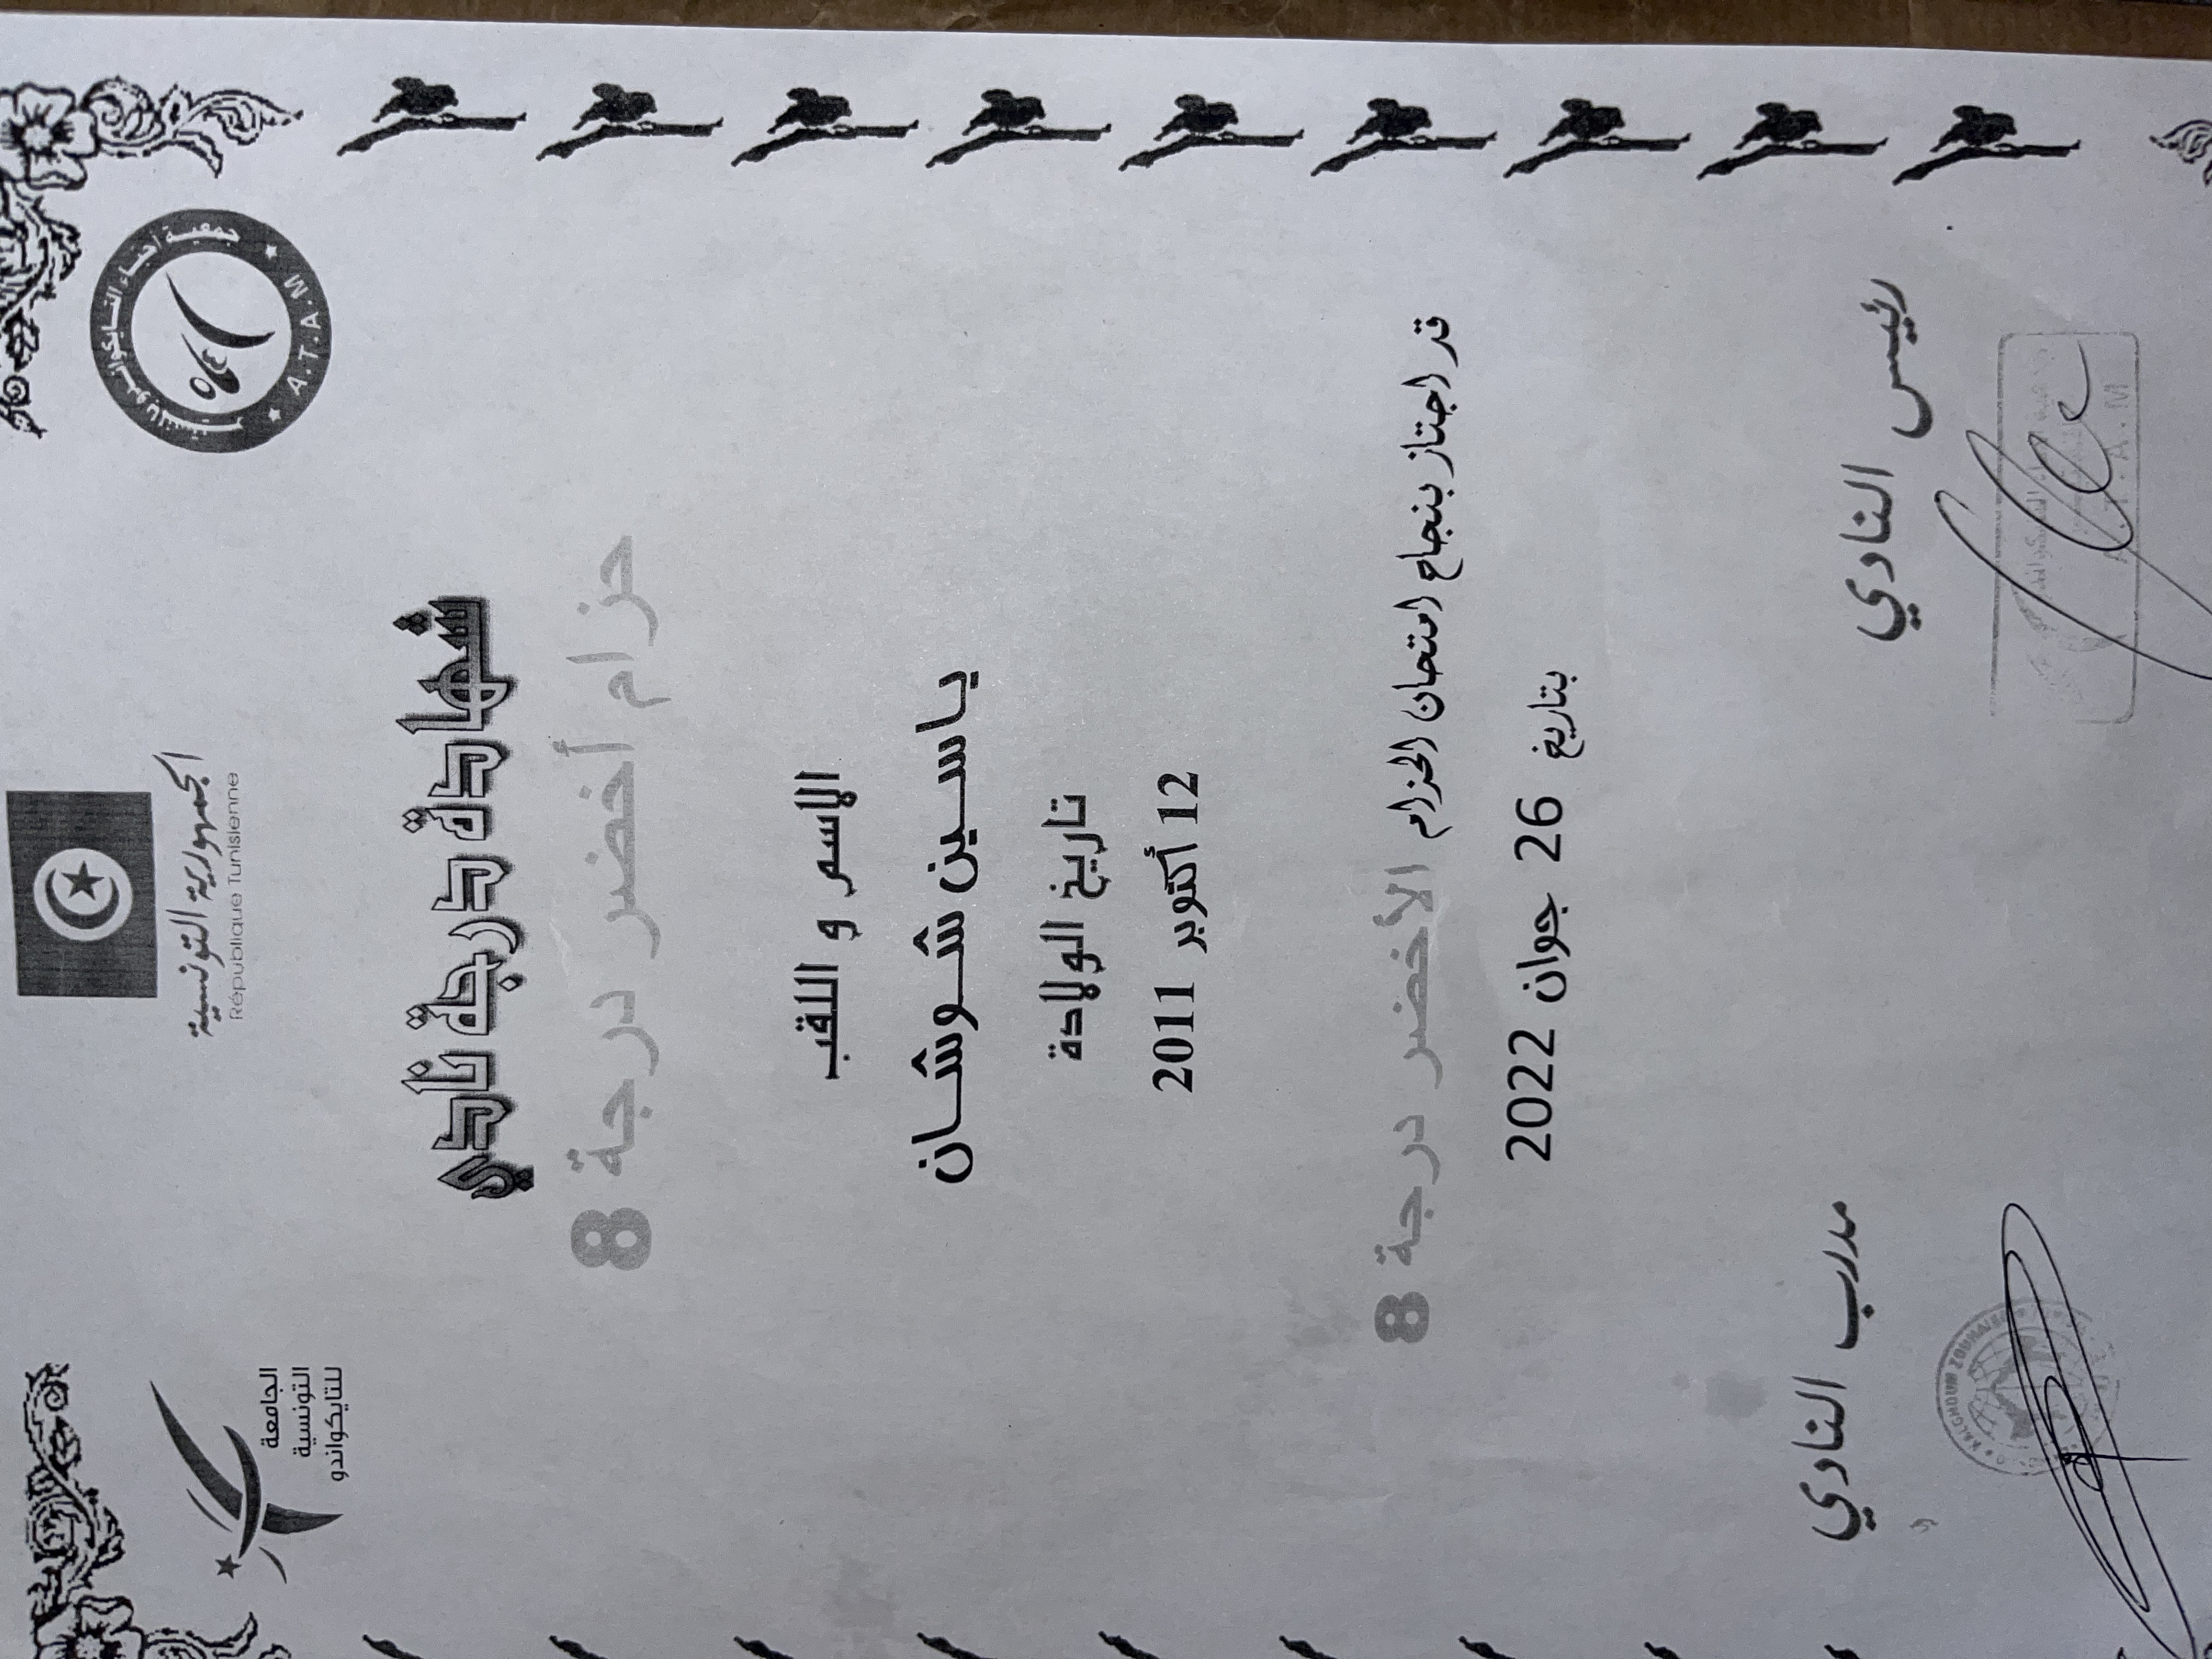 الجمهورية التونسية
République Tunisienne
الجامعة
التونسية
للتايكواندو
A.T.A.M
شهادة درجة نادي
حزام أخضر درجة 8
الاسم و اللقب
ياسين شوشان
تاريخ الولادة
12 أكتوبر 2011
قد اجتاز بنجاح امتحان الحزام الأخضر درجة 8
بتاريخ 26 جوان 2022
رئيس النادي
مدرب النادي